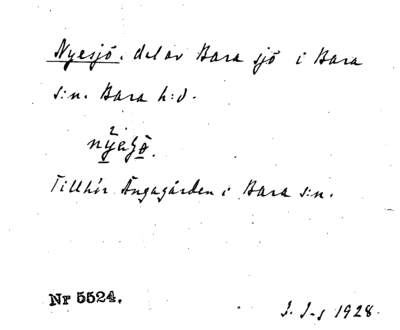 Nyesjö. del av Bara sjö i Bara
s:n. Bara h:d.
Tillhör Ängagården i Bara s:n.
Nr 5524.
J. J-s 1928.